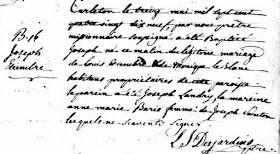 Carleton le treize mai mil sept cent
quatre vingt dix neuf par nous prêtre
missionnaire soussigné a été Baptisé
B. 16
Joseph né ce matin du légitime mariage
Joseph
de Louis et de Monique le blanc
habitans propriétaires de cette paroisse
le parain a été Joseph Landry, la mareine
anne marie Paris femme de Joseph
lesquels ne savent signer
LS Desjardins ptre